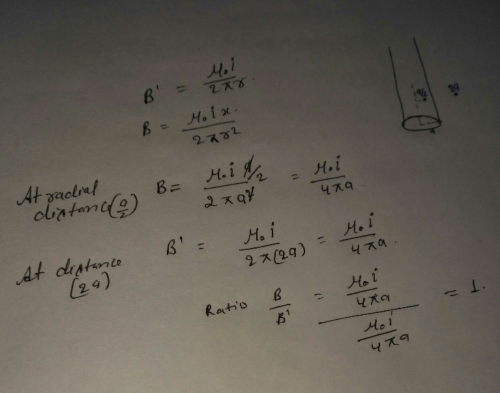 B' = μ₀i / 2πr.
B = μ₀ix / 2πr2
At radial distance (a/2) B = μ₀i a/2 / 2πa² = μ₀i / 4πa
At distance (2a) B' = μ₀i / 2π(2a) = μ₀i / 4πa.
Ratio B/B' = μ₀i/4πa / μ₀i/4πa = 1.